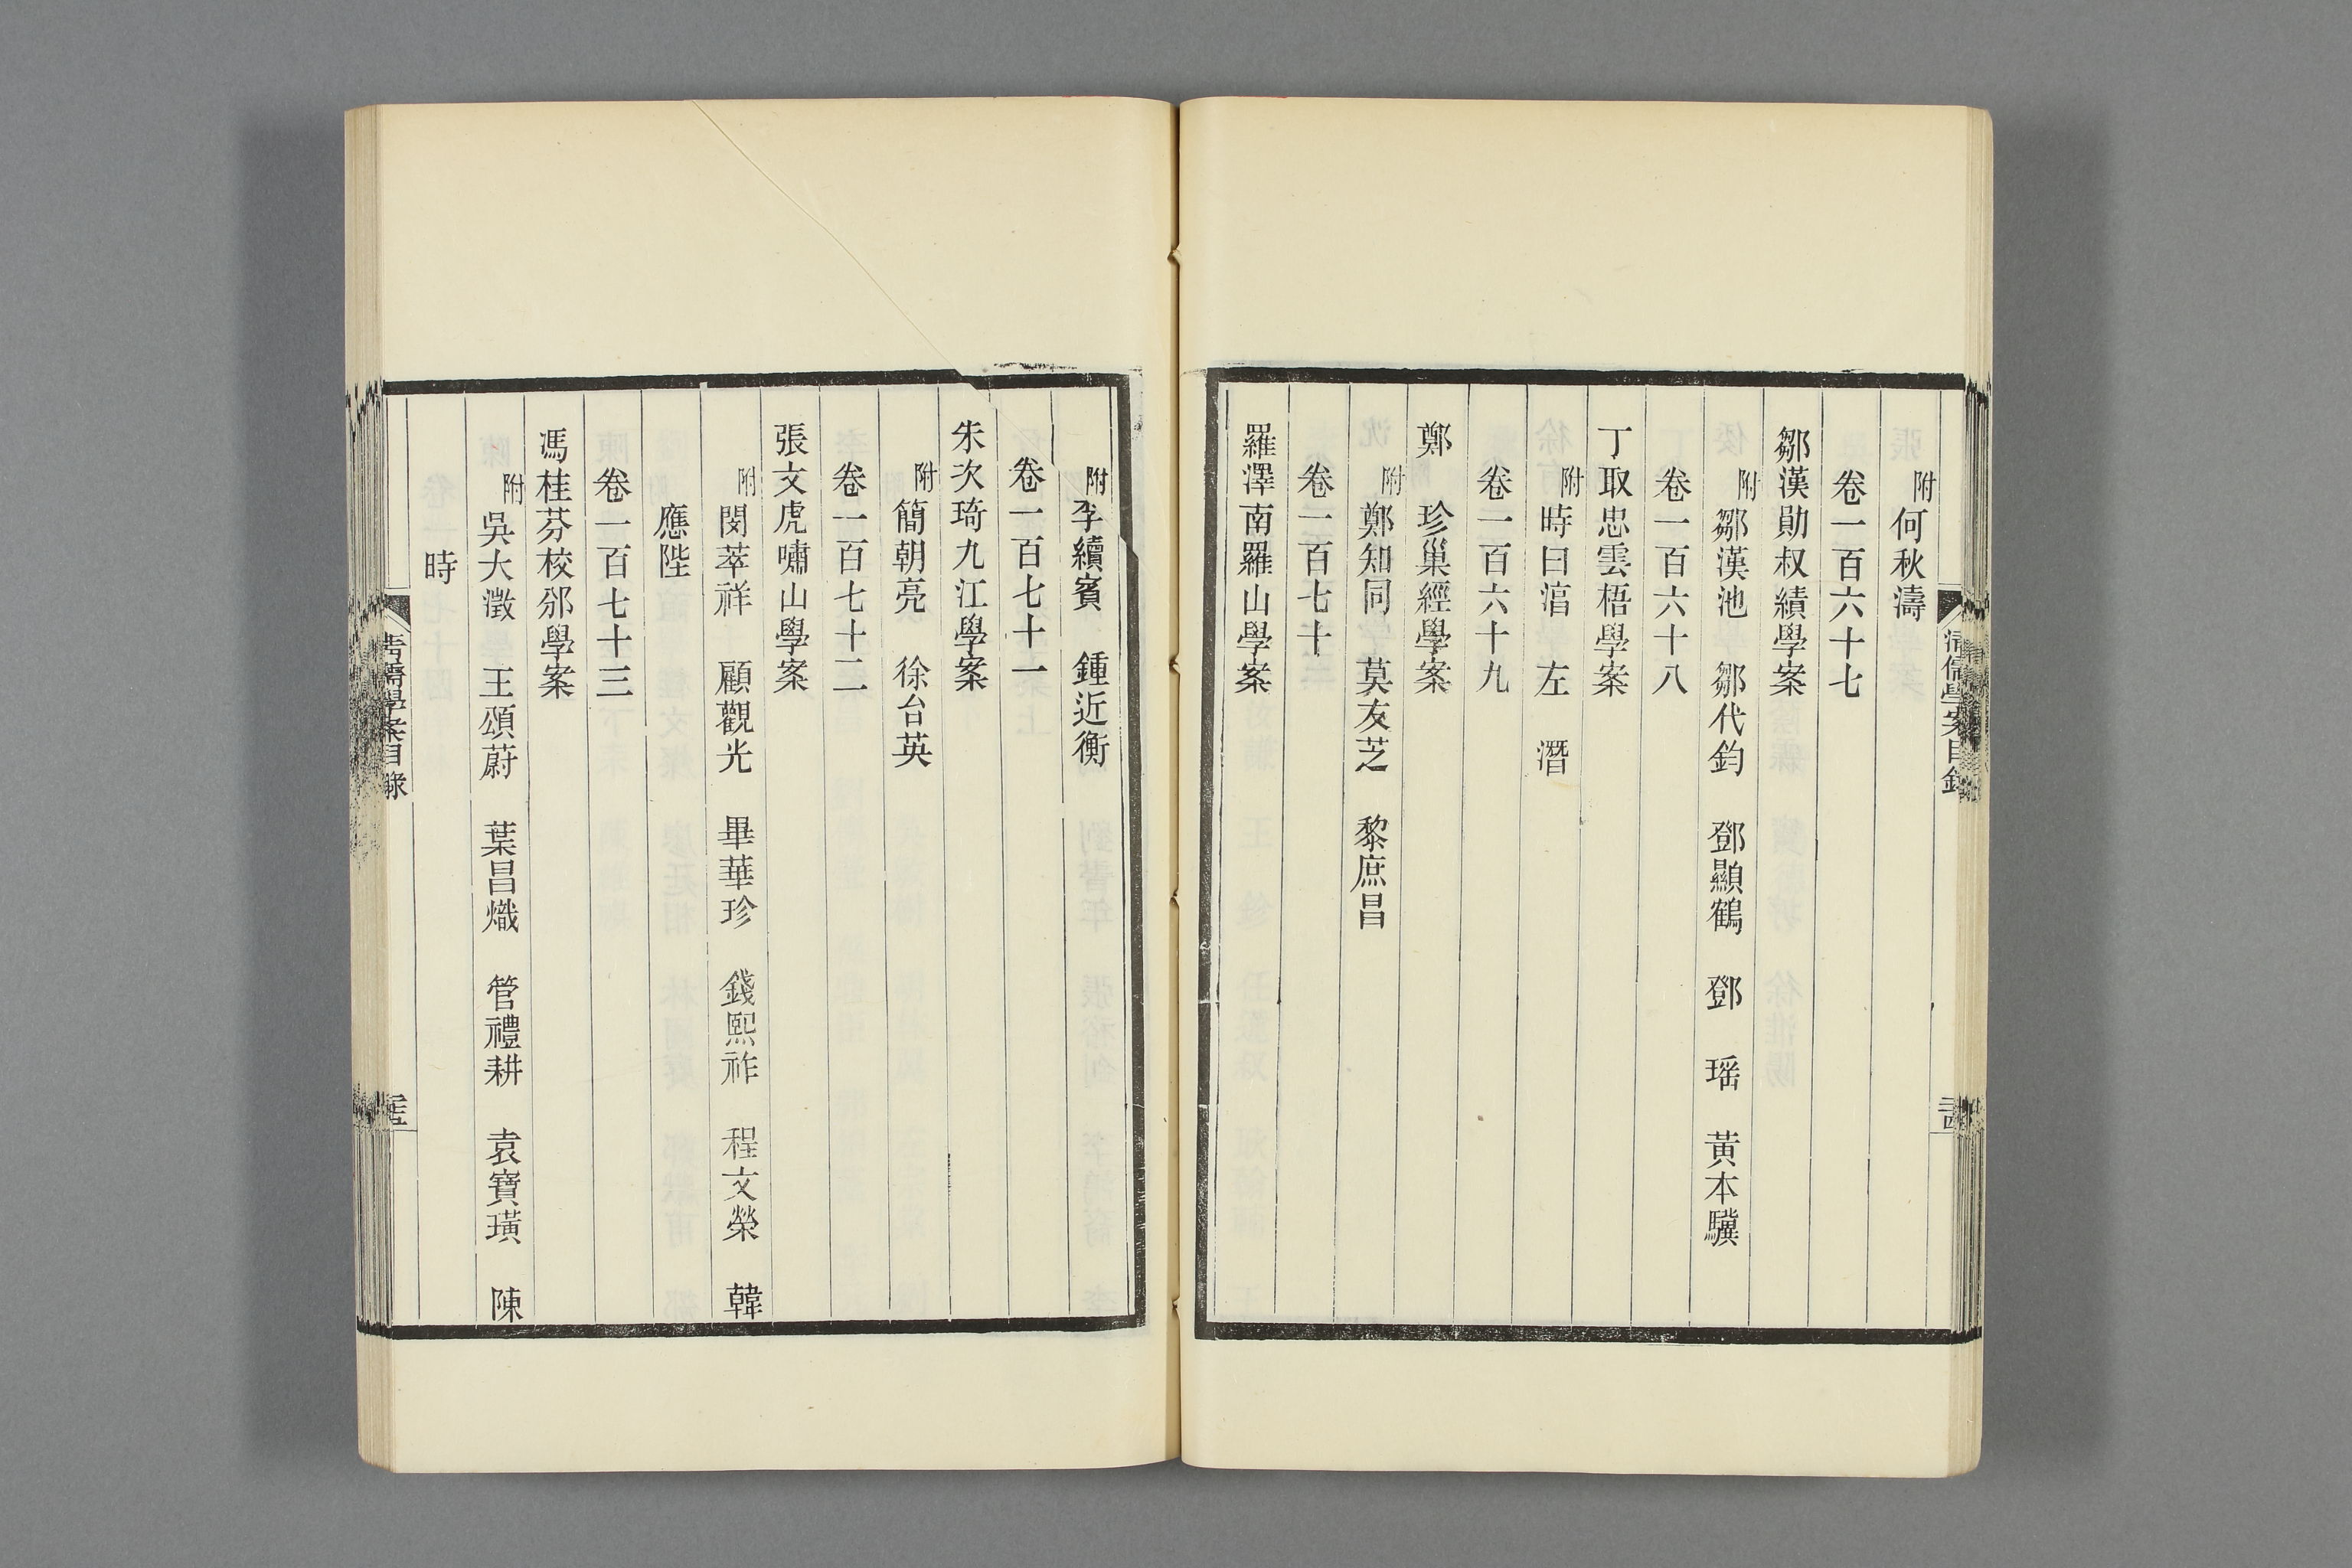 清儒學案目錄
附何秋濤
卷一百六十七
鄒漢勛叔績學案
附鄒漢池　鄒代鈞　鄧顯鶴　鄧　瑶　黃本驥
卷一百六十八
丁取忠雲梧學案
附時曰淯　左　潛
卷一百六十九
鄭　珍巢經學案
附鄭知同　莫友芝　黎庶昌
卷一百七十
羅澤南羅山學案
附李續賓　鍾近衡
卷一百七十一
朱次琦九江學案
附簡朝亮　徐台英
卷一百七十二
張文虎嘯山學案
附閔萃祥　顧觀光　畢華珍　錢熙祚　程文榮　韓
應陛
卷一百七十三
馮桂芬校邠學案
附吳大澂　王頌蔚　葉昌熾　管禮耕　袁寶璜　陳
時
清儒學案目錄